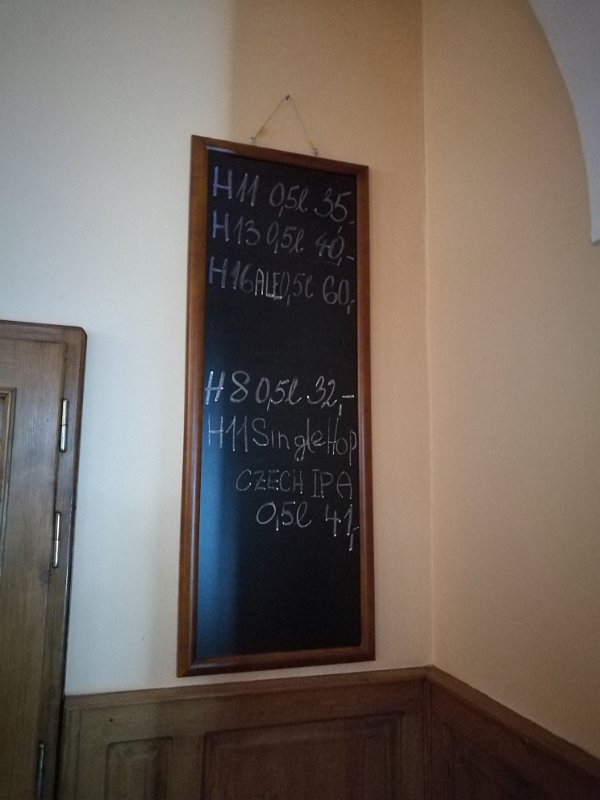 H11 0,5l 35,-
H13 0,5l 40,-
H16 ALE 0,5l 60,-
H8 0,5l 32,-
H11 Single Hop
CZECH IPA
0,5l 41,-